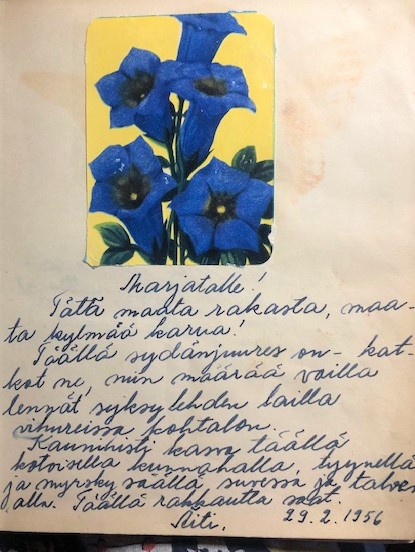 Marjatalle!
Tätä maata rakasta, maa-
ta kylmää karua!
Täällä sydänjuures on - kat-
kot ne, niin määrää vailla
lennät syksylehden lailla
vihureissa kohtalon.
Kauniisti kasva täällä
kotoisella kunnahalla, tyynellä
ja myrsky säällä, suvessa ja talven
alla. Täällä rakkautta saat.
Äiti. 29.2.1956